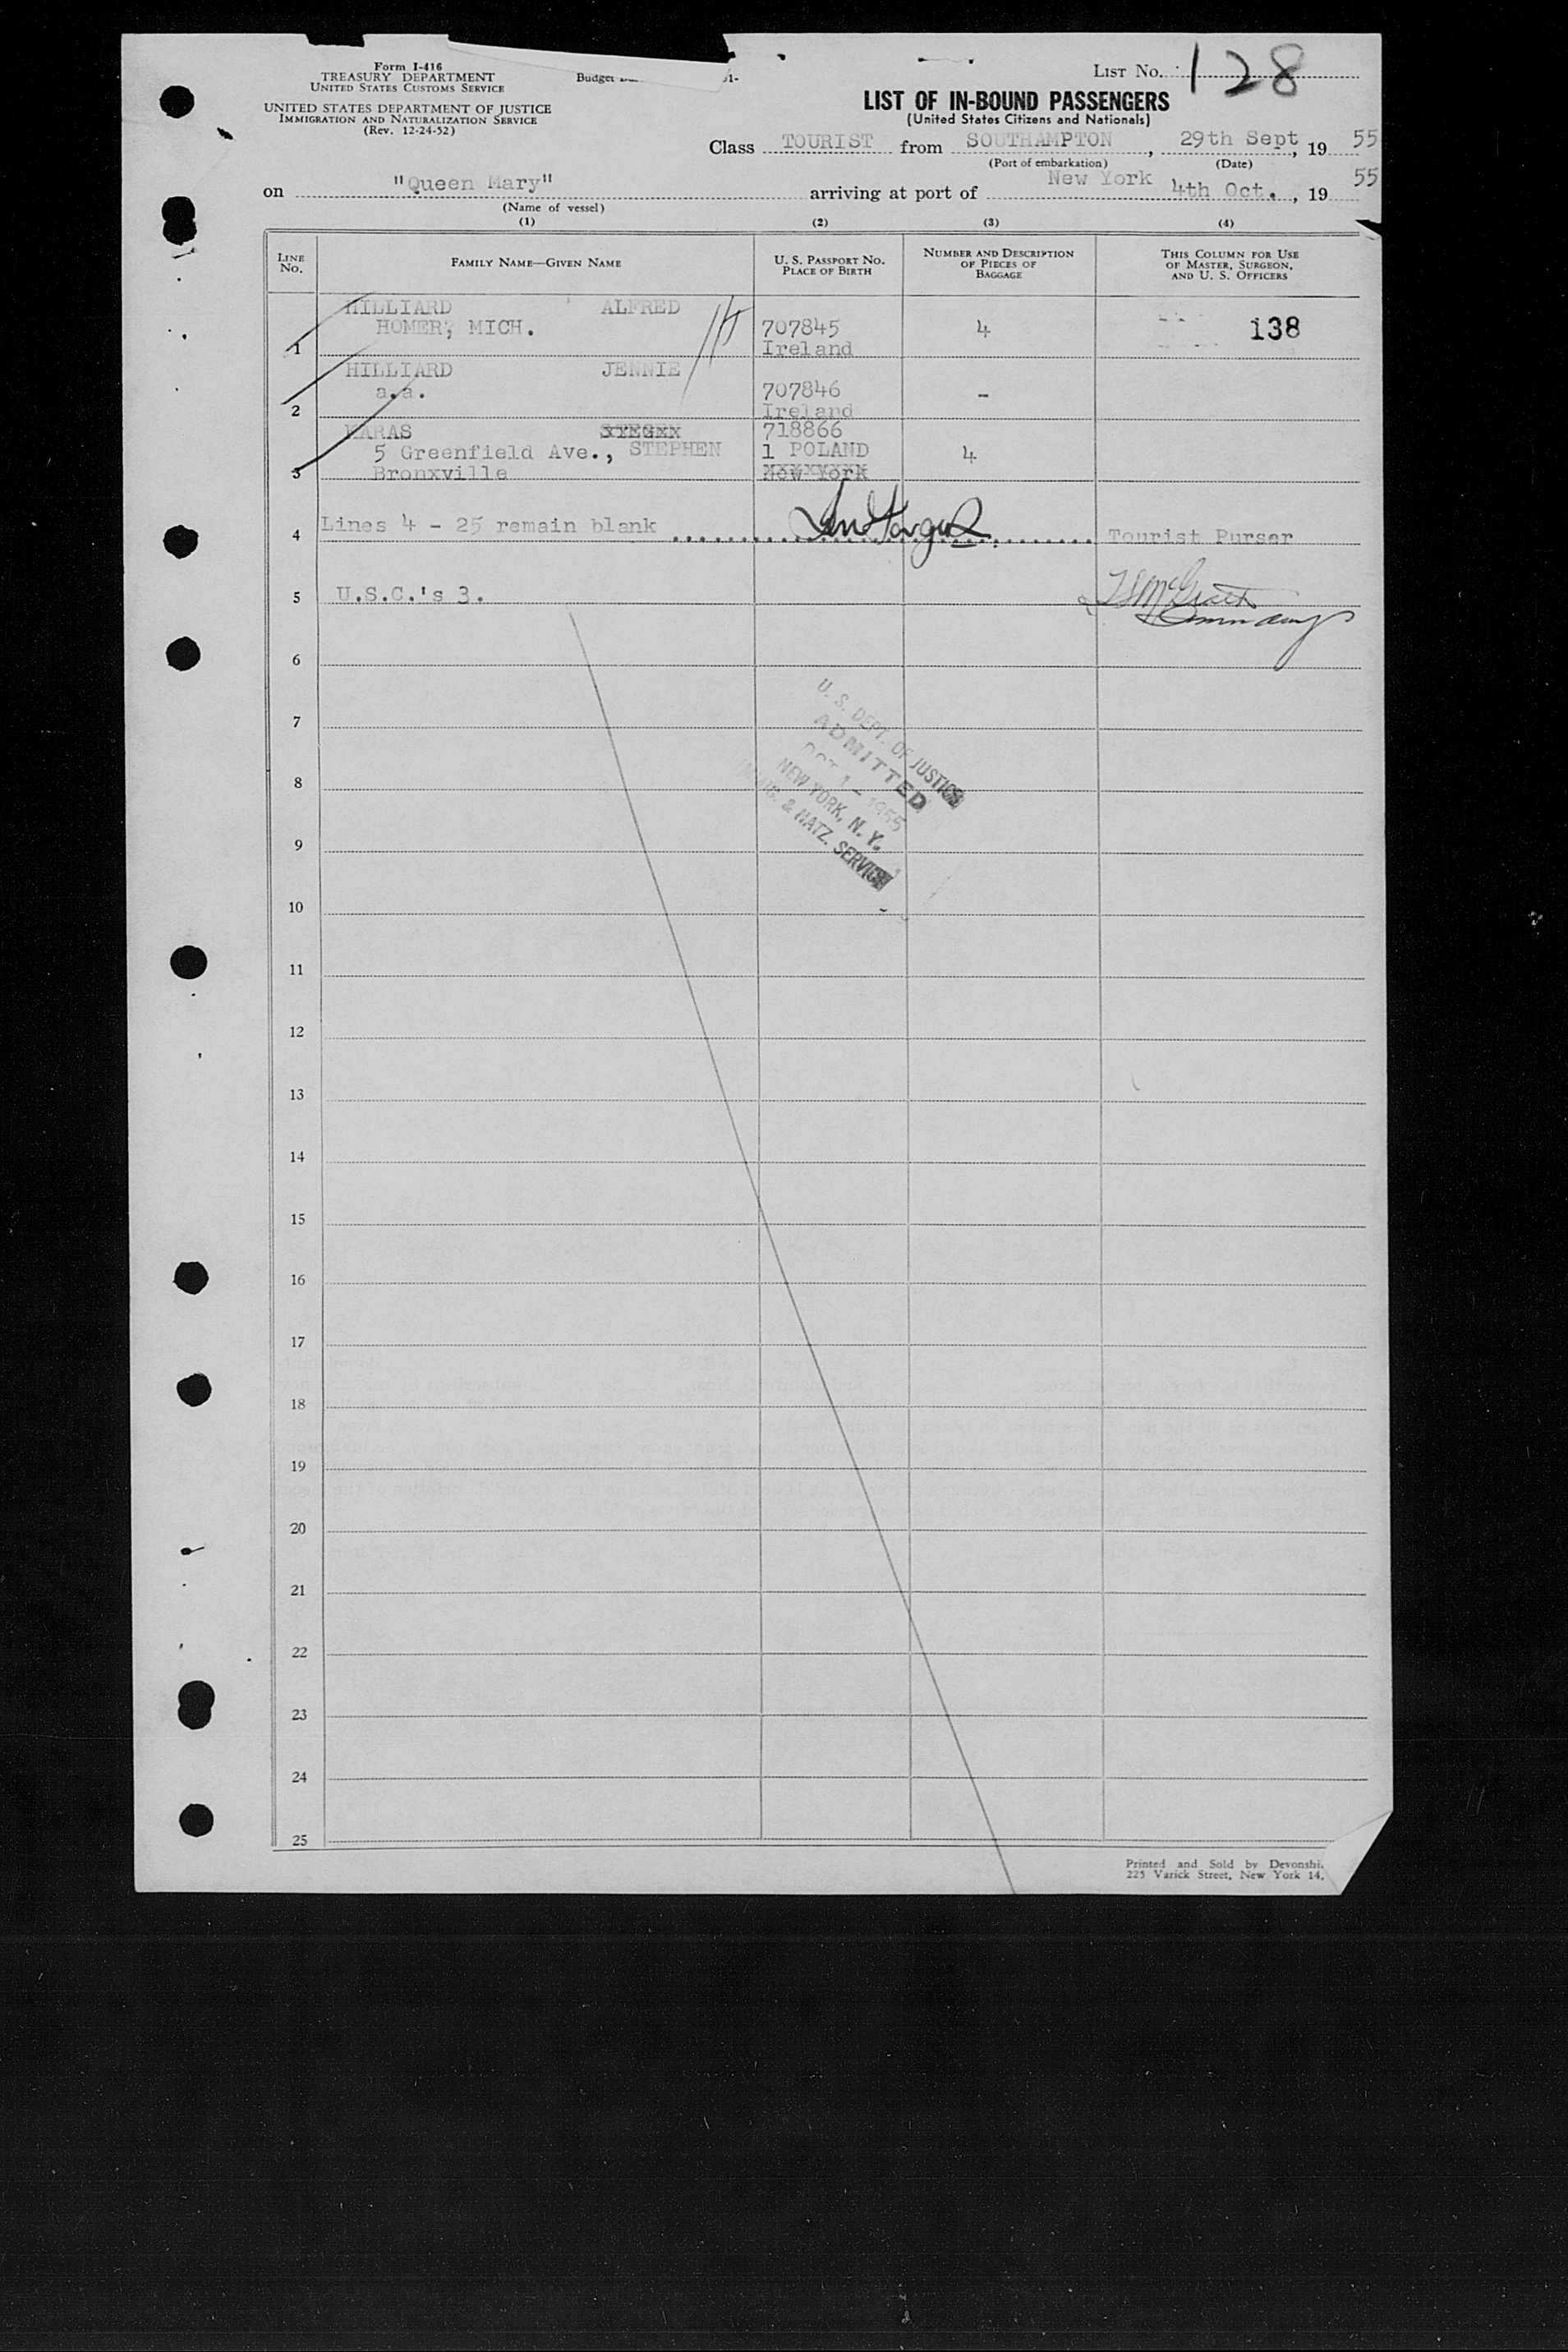 Form I-416
TREASURY DEPARTMENT
UNITED STATES CUSTOMS SERVICE
UNITED STATES DEPARTMENT OF JUSTICE
IMMIGRATION AND NATURALIZATION SERVICE
(Rev. 12-24-52)
Budget
LIST NO. 128
LIST OF IN-BOUND PASSENGERS
(United States Citizens and Nationals)
Class TOURIST from SOUTHAMPTON, 29th Sept, 19 55
(Port of embarkation) (Date)
on "Queen Mary" arriving at port of New York 4th Oct., 19 55
(Name of vessel)
(1) (2) (3) (4)
LINE NO.
FAMILY NAME—GIVEN NAME
U. S. PASSPORT NO.
PLACE OF BIRTH
NUMBER AND DESCRIPTION
OF PIECES OF
BAGGAGE
THIS COLUMN FOR USE
OF MASTER, SURGEON,
AND U. S. OFFICERS
HILLIARD ALFRED
HOMER, MICH. 707845 4 138
1 Ireland
HILLIARD JENNIE
a.a. 707846 -
2 Ireland
KARAS 718866
5 Greenfield Ave., STEPHEN 1 POLAND 4
3 Bronxville New York
4 Lines 4 - 25 remain blank Tourist Purser
5 U.S.C.'s 3.
6
U. S. DEPT. OF JUSTICE
ADMITTED
OCT 4 - 1955
NEW YORK, N. Y.
IMMIG. & NATZ. SERVICE
7
8
9
10
11
12
13
14
15
16
17
18
19
20
21
22
23
24
25
Printed and Sold by Devonshi
225 Varick Street, New York 14,